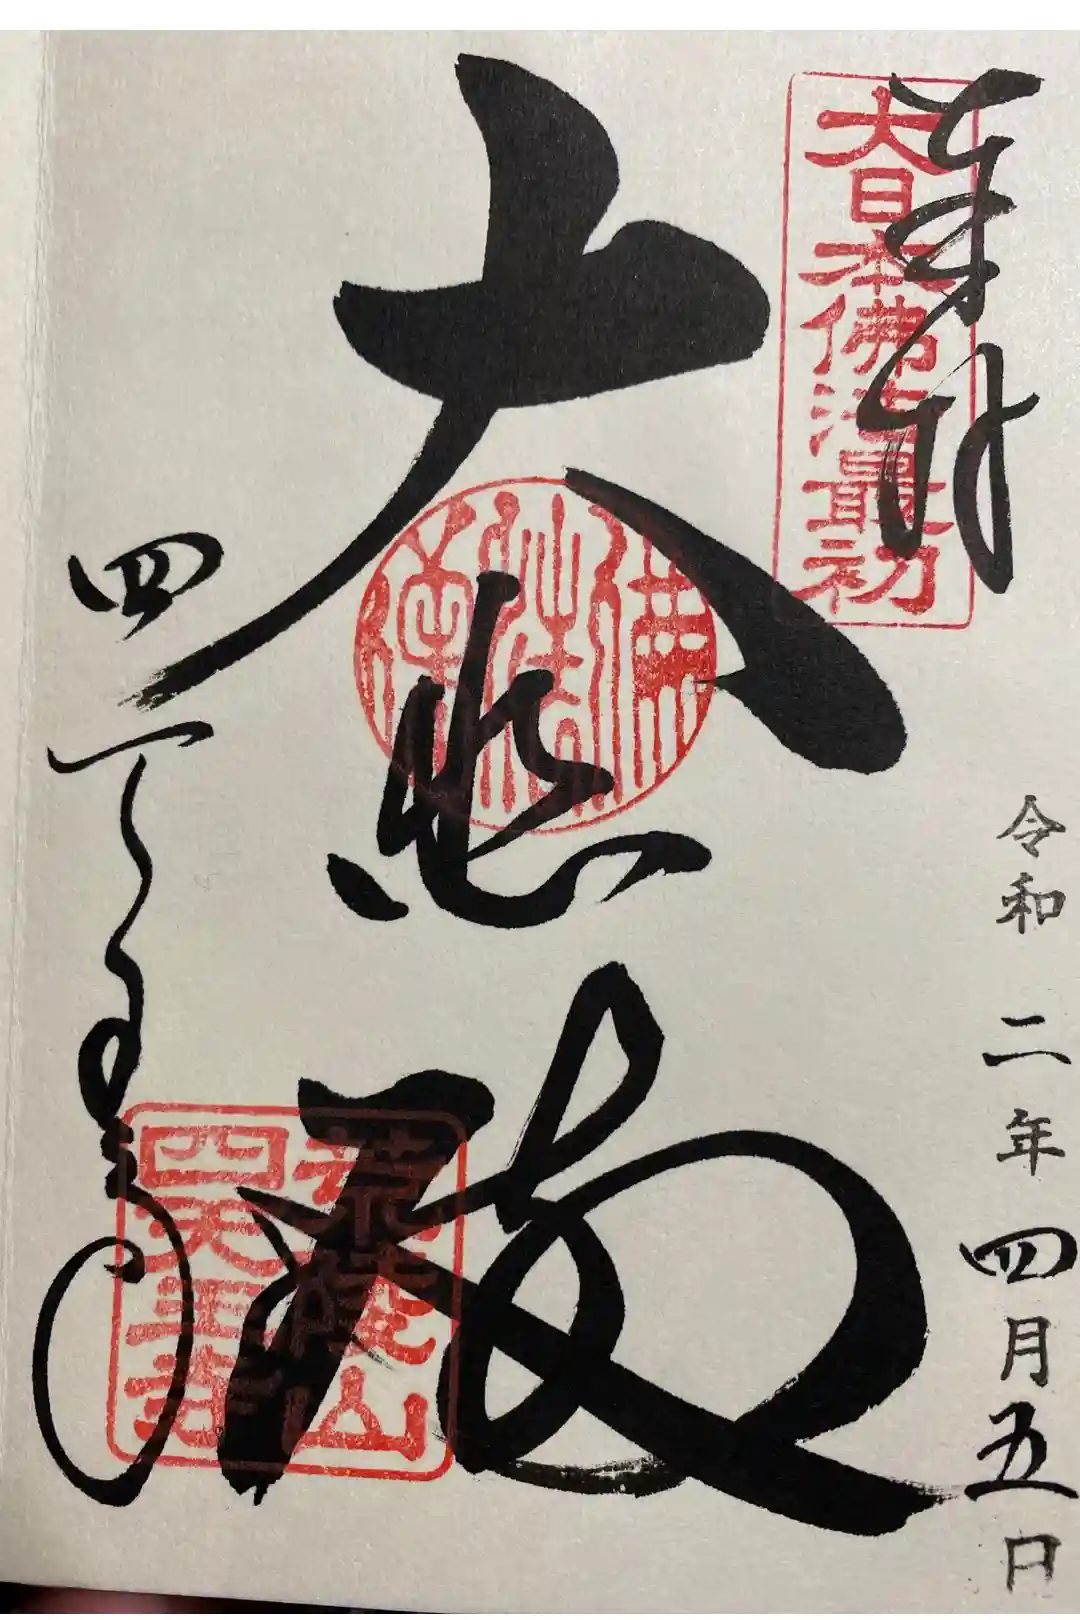 奉拝
大日本佛法最初
令和二年四月五日
大悲殿
佛法僧
四天王寺
荒陵山
四天王寺